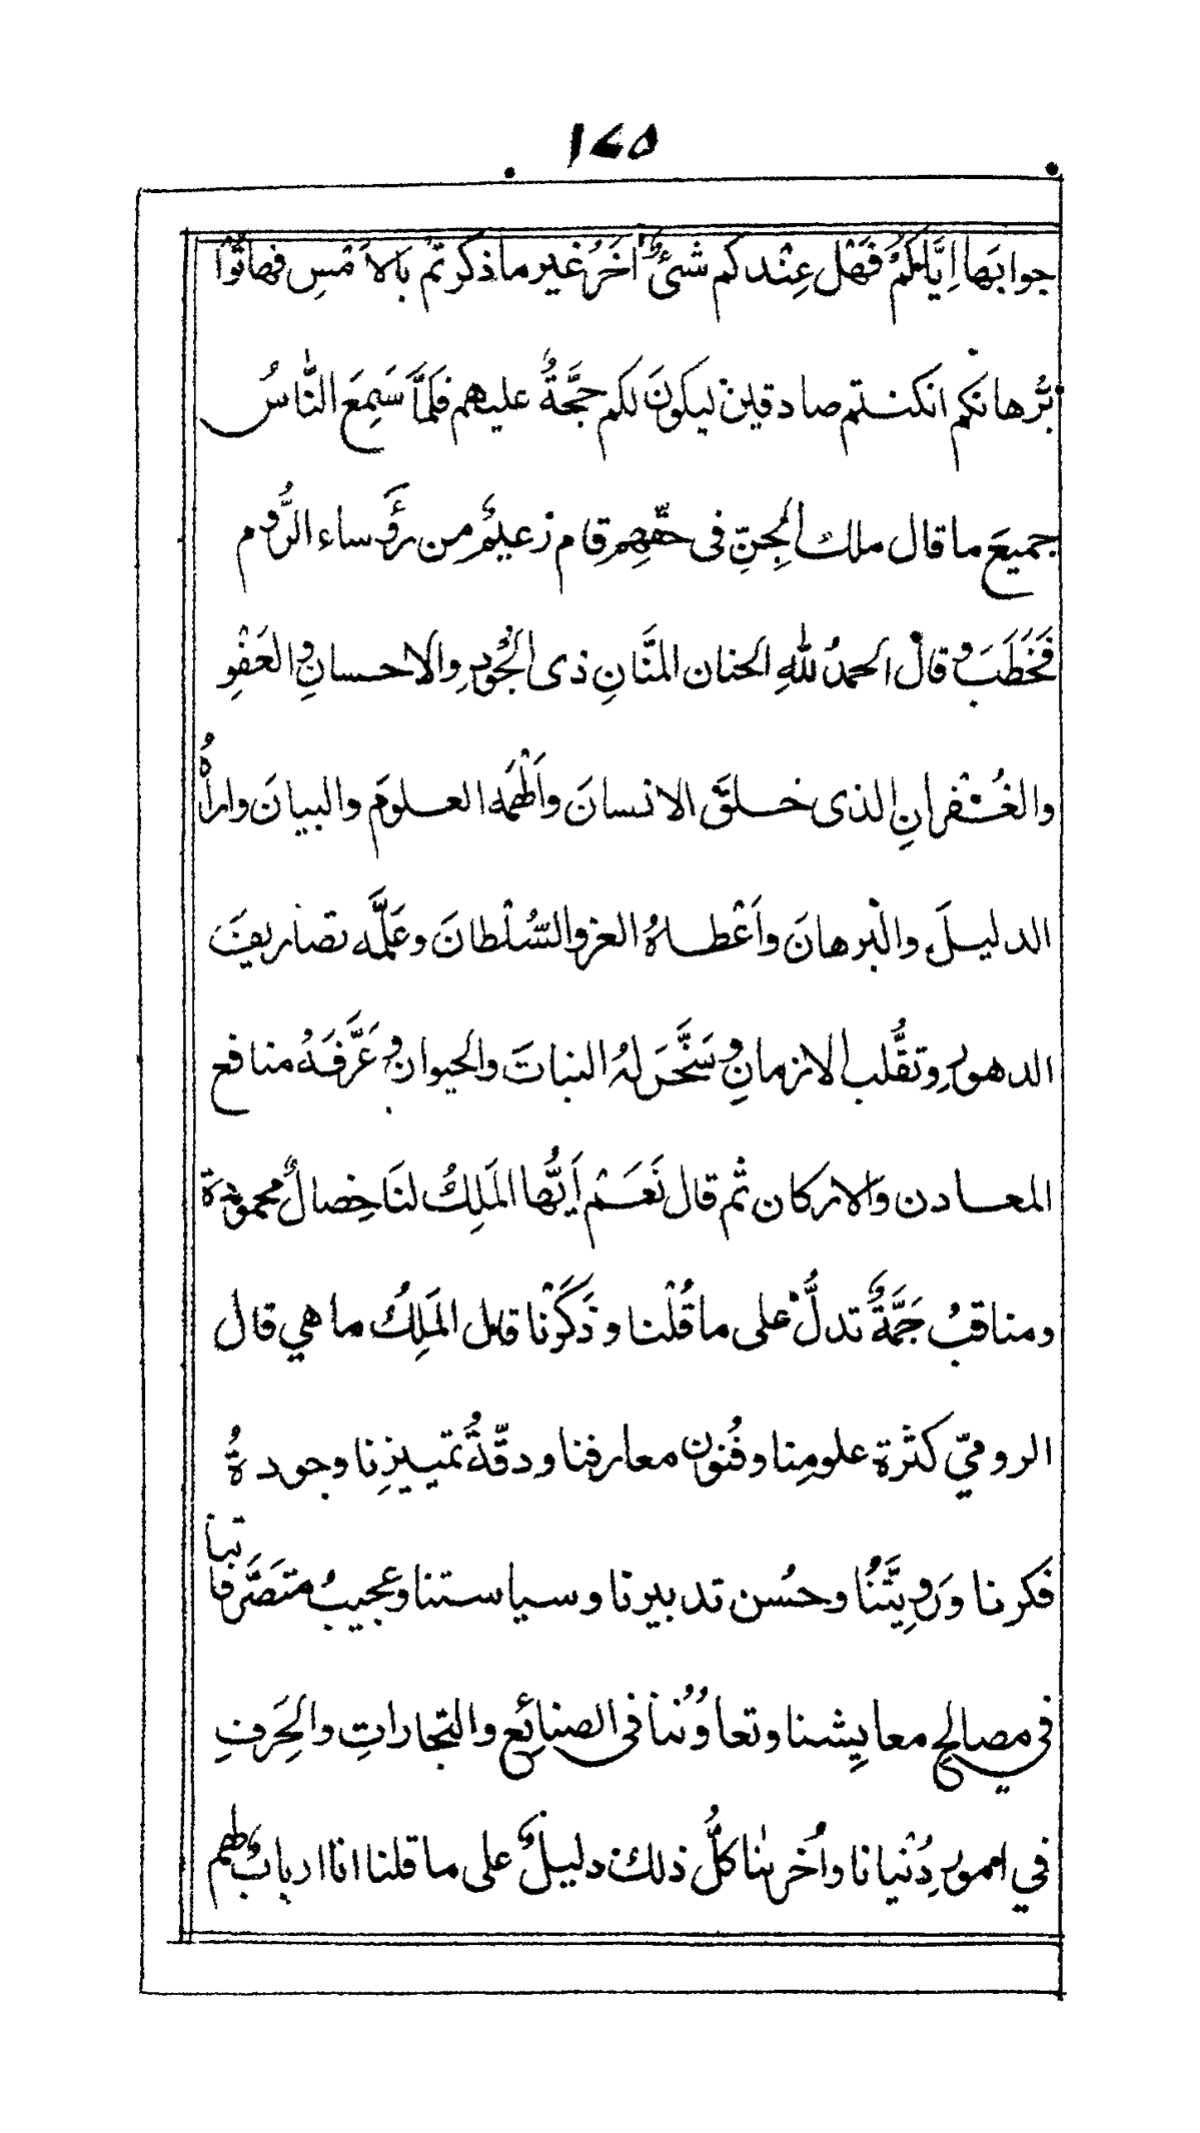 ١٤٥
جوابَها اِيَّاكُمْ فَهَل عِنْدكم شئٌ اٰخَرُ غير ما ذكرتم بالاَمْسِ فهاتُوْا
بُرْهانكم ان كنتم صادقين ليكونَ لكم حجَّةٌ عليهم فلمَّا سَمِعَ النَّاسُ
جميعَ ما قال ملك الجِنِّ فى حقِّهِم قام زعيمٌ من رؤَساء الرُّوم
فَخَطَبَ وقالَ الحمدُ للّٰهِ الحنان المنَّانِ ذى الجُوْدِ والاحسانِ والعَفْوِ
والغُفْرانِ الذى خلقَ الانسانَ واَلْهَمَه العلومَ والبيانَ واراهُ
الدليلَ والبْرهانَ واَعْطاهُ العز والسُّلْطانَ وعَلَّمه تصاريفَ
الدهورِ وتقلُّب الازمانِ وسَخَّرَ لهُ النباتَ والحيوان وعَرَّفَهُ منافع
المعادن والاركان ثم قال نَعَمْ اَيُّها المَلِكُ لنَا خِصالٌ محمودة
ومناقبُ جَمَّةٌ تدلُّ على ما قُلْنا وذَكَرْنا قال المَلِكُ ما هي قال
الروميّ كثْرة علومِنا وفُنون معارفنا ودقّةُ تمييزِنا وجودةُ
فكرنا ورَوِيَّتُنا وحُسن تدبيرنا وسياستنا وعجيبُ متصَرَّفاتنا
في مصالحِ معايِشنا وتعاوُننا فى الصنائِع والتجاراتِ والحِرَفِ
في امورِ دُنْيانا واُخْرٰىنا كلُّ ذلك دليلٌ على ما قلنا انا اربابٌ لهم